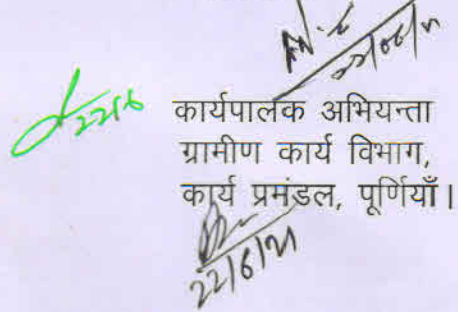 22/06/21
22/6
कार्यपालक अभियन्ता
ग्रामीण कार्य विभाग,
कार्य प्रमंडल, पूर्णियाँ।
22/6/21